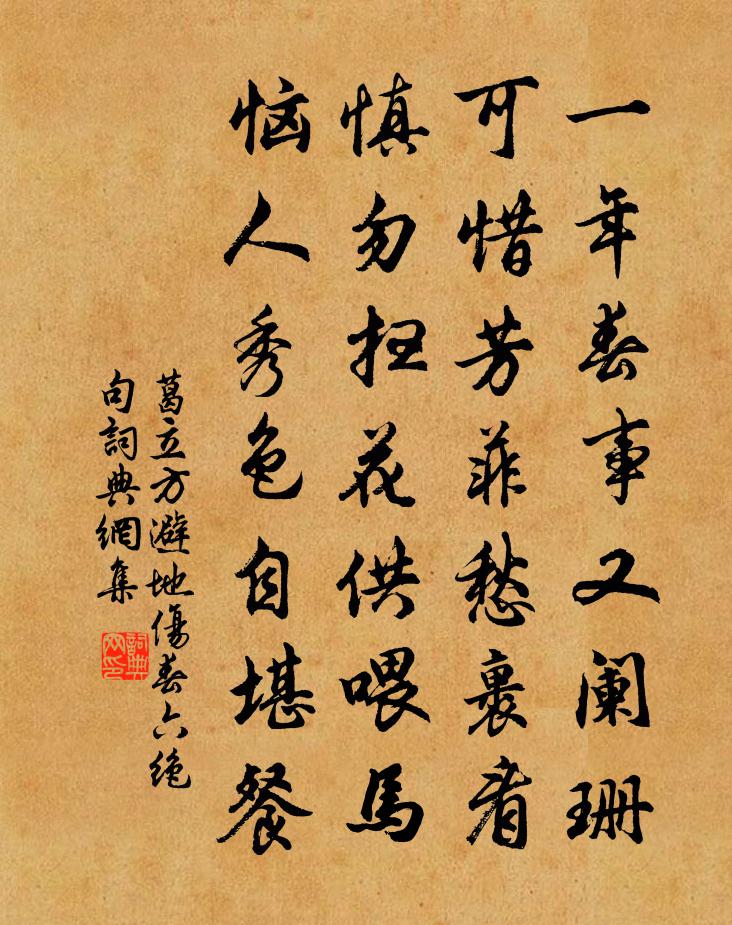 一年春事又阑珊
可惜芳菲愁裏看
慎勿扫花供喂馬
恼人秀色自堪餐
葛立方避地傷春六绝
句詞典網集
詞典网印